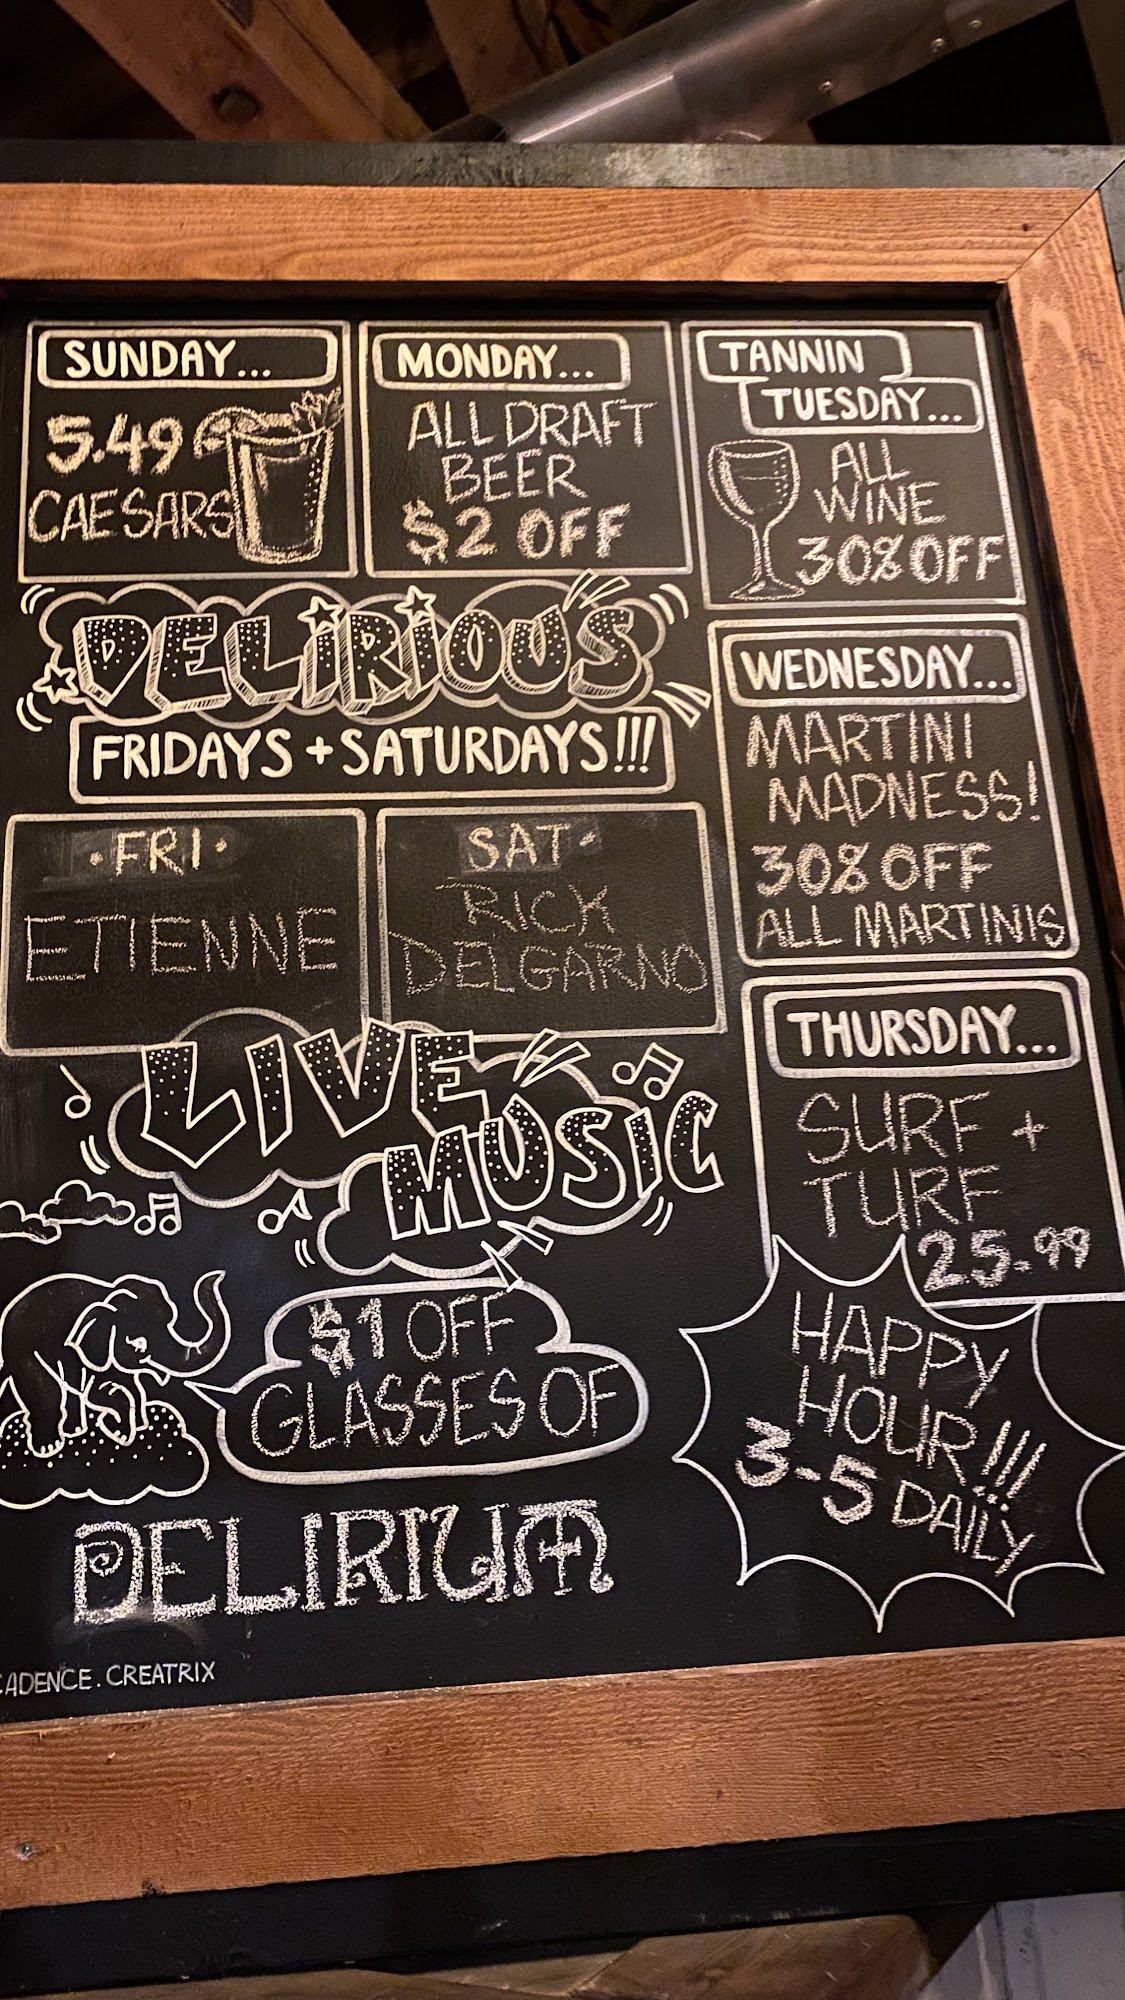 SUNDAY...
5.49
CAESARS
MONDAY...
ALL DRAFT
BEER
$2 OFF
TANNIN
TUESDAY...
ALL
WINE
30% OFF
DELIRIOUS
FRIDAYS + SATURDAYS!!!
• FRI •
ETIENNE
SAT •
RICK
DELGARNO
LIVE
MUSIC
$1 OFF
GLASSES OF
DELIRIUM
WEDNESDAY...
MARTINI
MADNESS!
30% OFF
ALL MARTINIS
THURSDAY...
SURF +
TURF
25.99
HAPPY
HOUR!!!
3-5 DAILY
CADENCE.CREATRIX